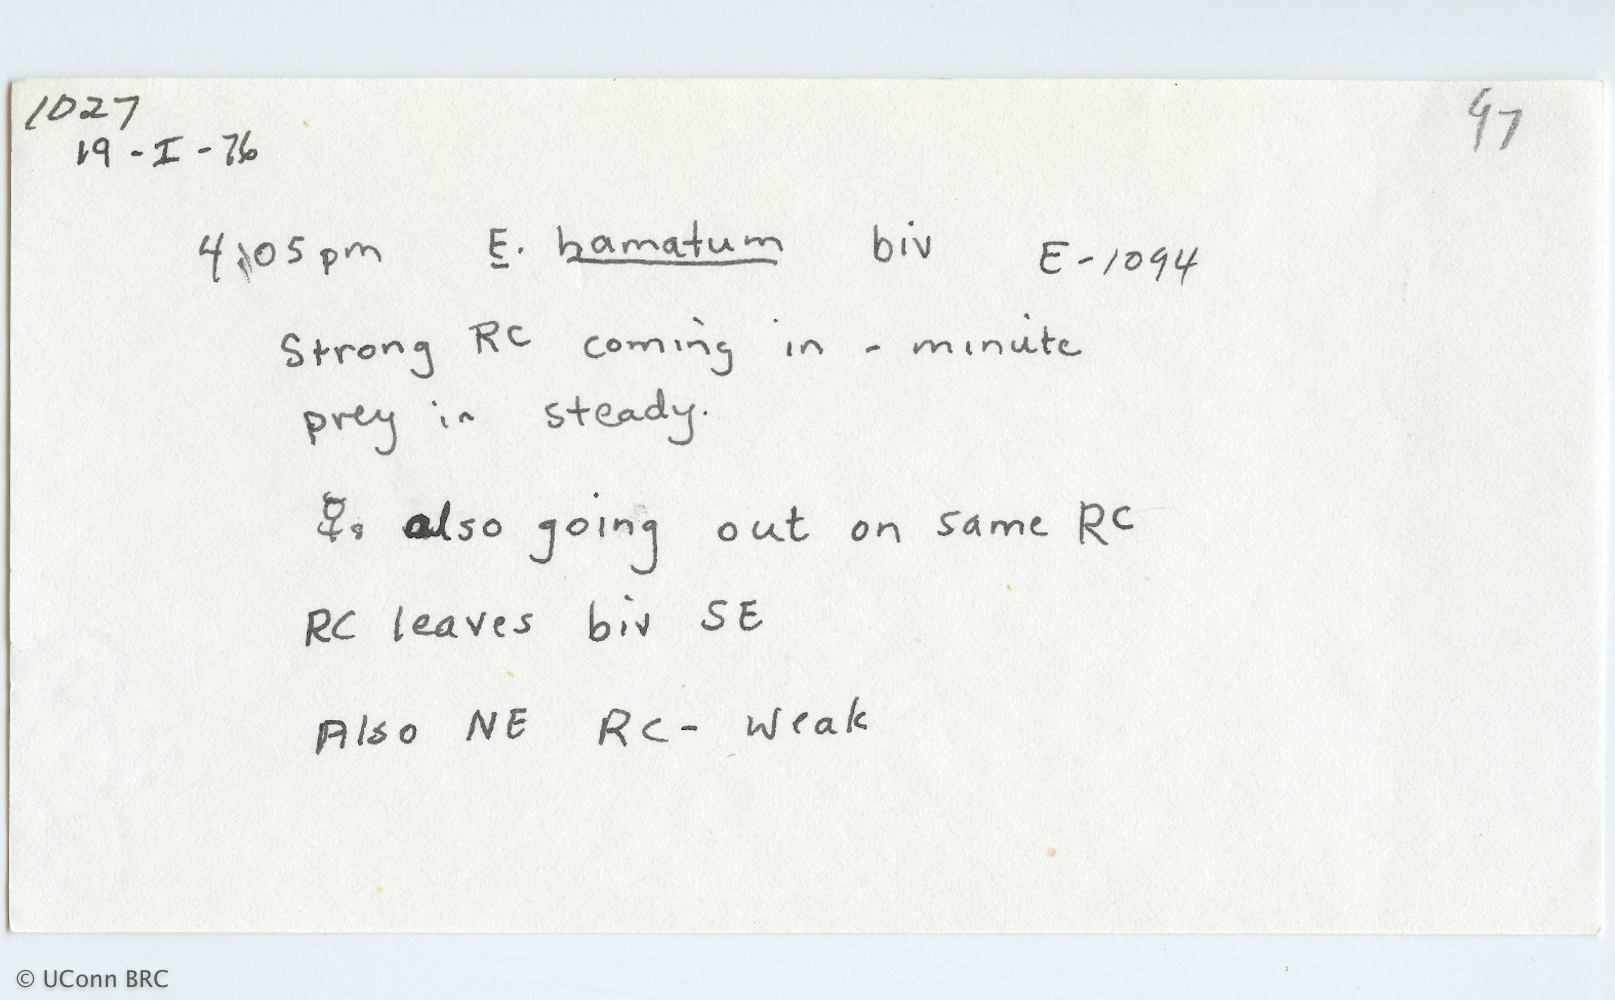 1027
97
19-I-76
4:05 pm E. hamatum biv E-1094
Strong RC coming in - minute
prey in steady.
☿s also going out on same RC
RC leaves biv SE
Also NE RC - weak
© UConn BRC